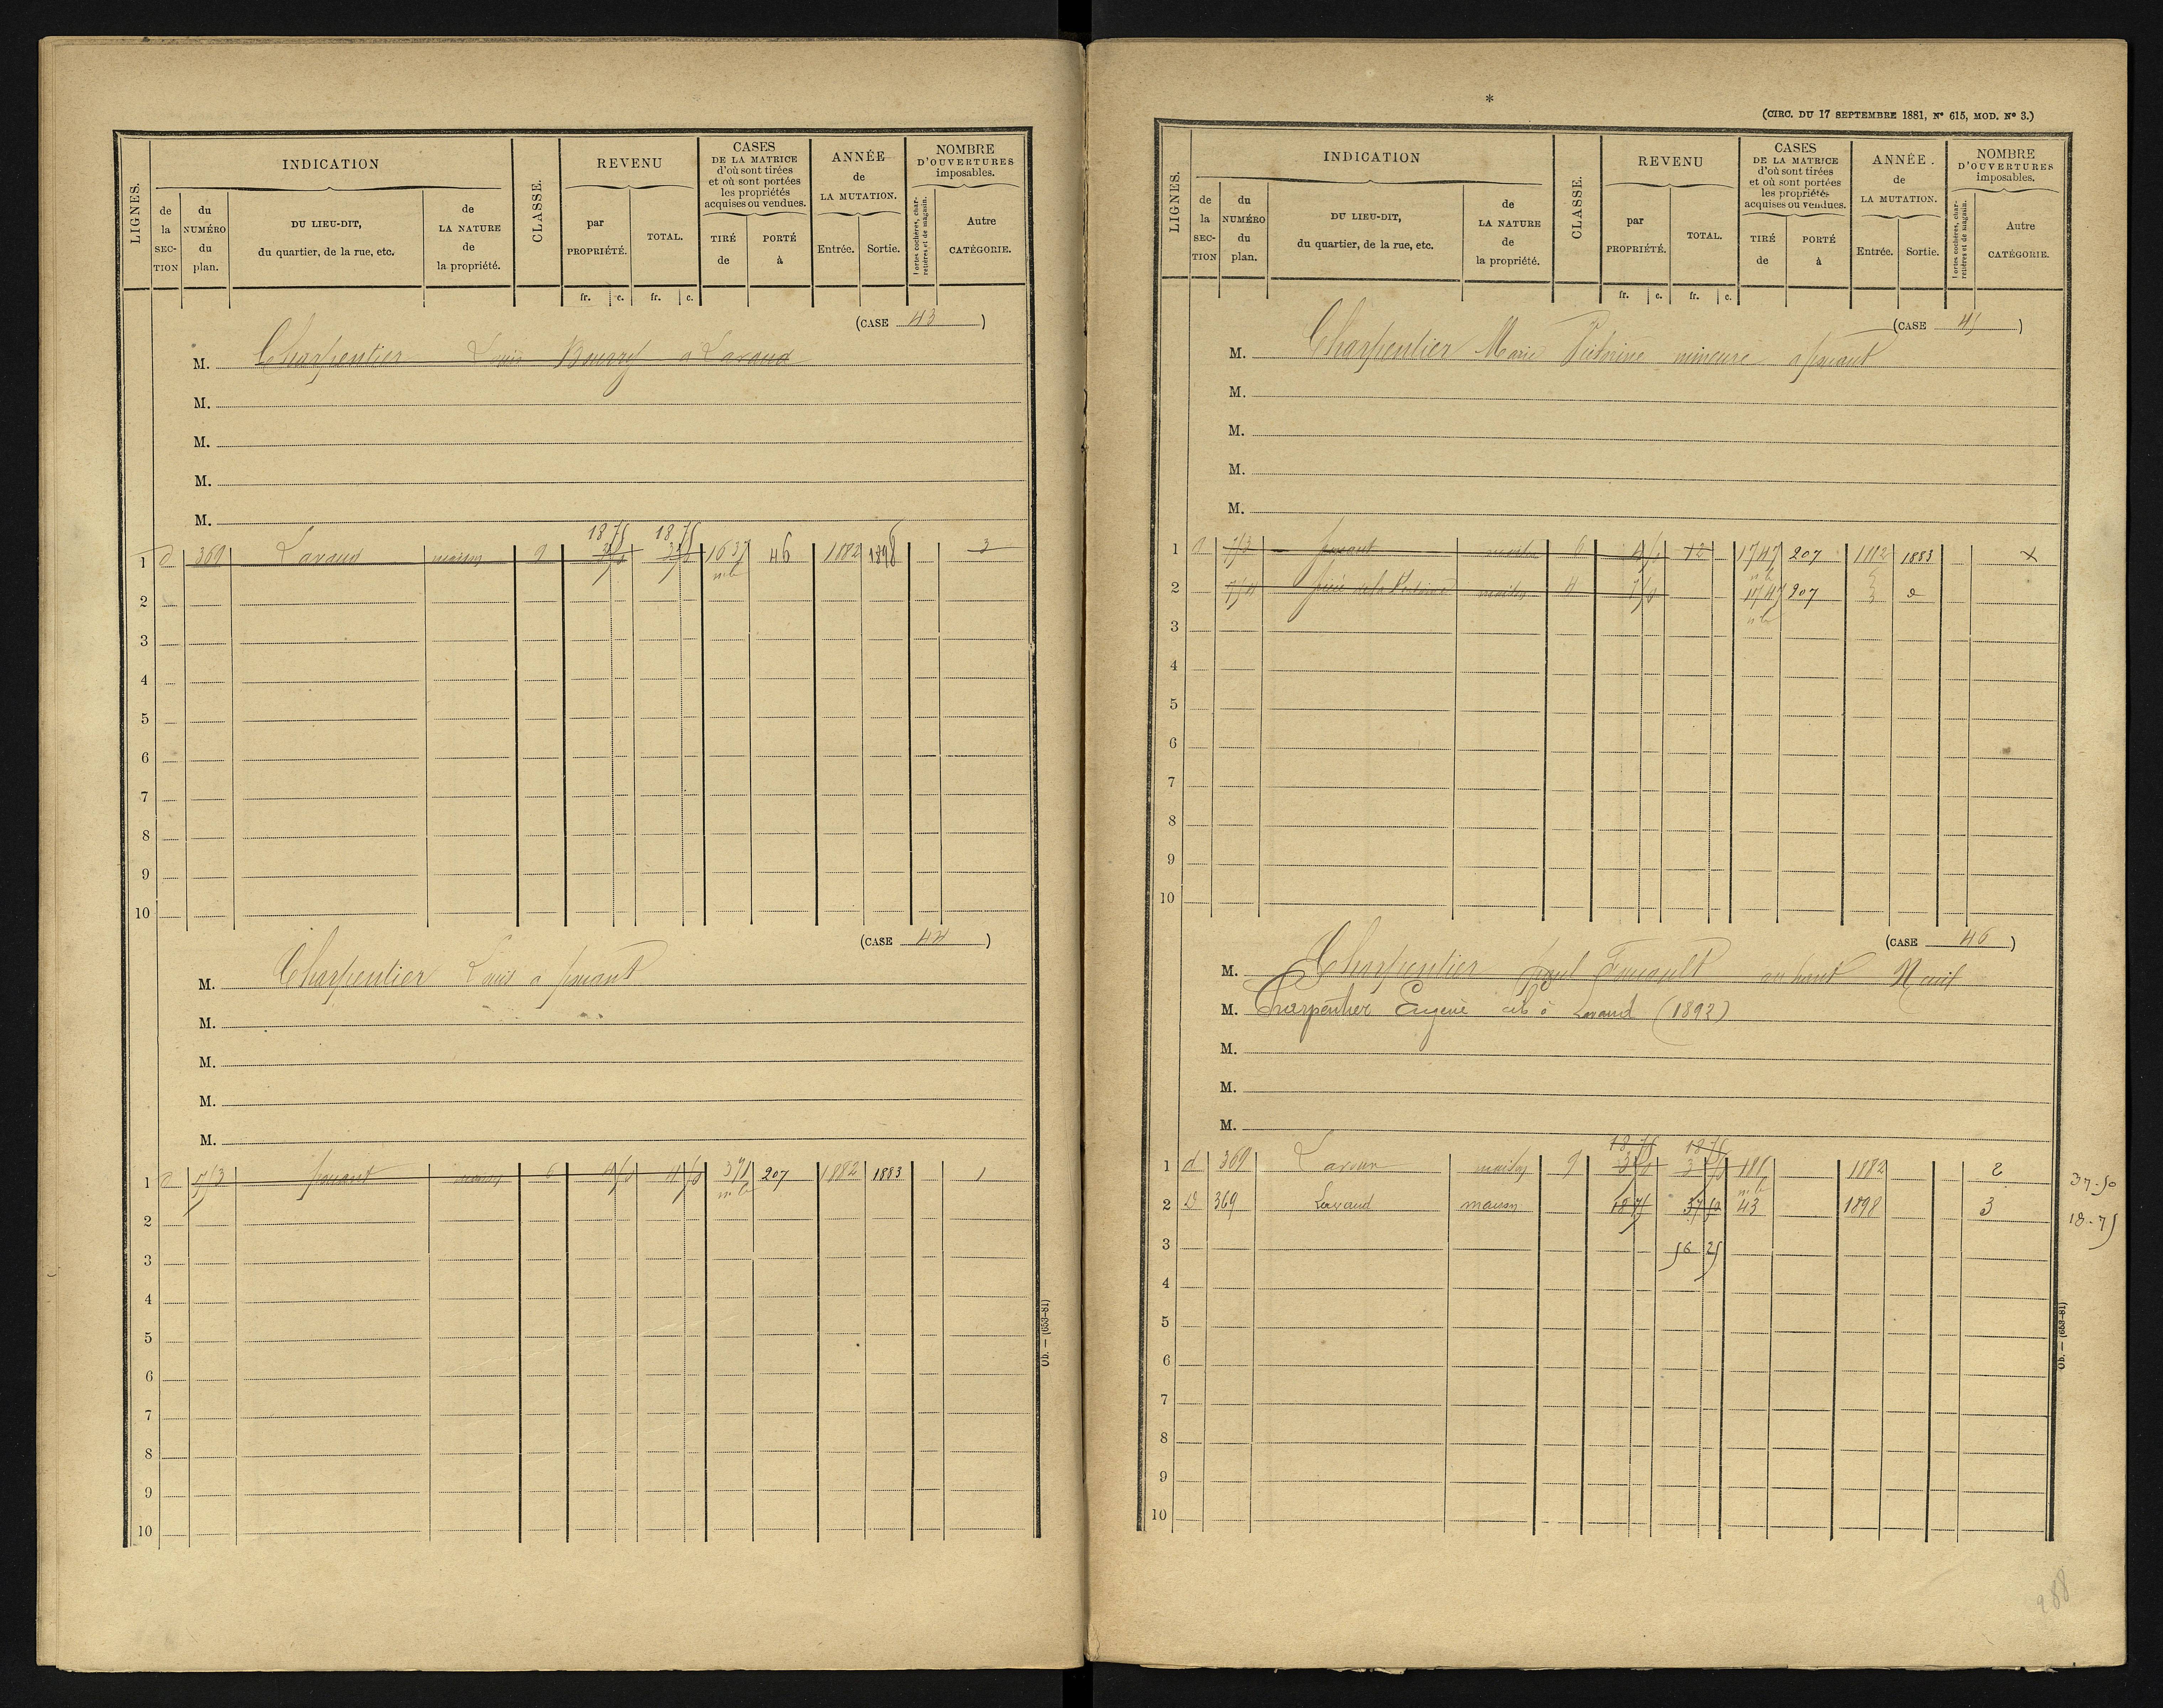 LIGNES.
INDICATION
de la SECTION
du NUMÉRO du plan.
DU LIEU-DIT, du quartier, de la rue, etc.
de LA NATURE de la propriété.
CLASSE.
REVENU
par PROPRIÉTÉ.
TOTAL.
fr. c. fr. c.
CASES DE LA MATRICE d'où sont tirées et où sont portées les propriétés acquises ou vendues.
TIRÉ de
PORTÉ à
ANNÉE de LA MUTATION.
Entrée. Sortie.
NOMBRE D'OUVERTURES imposables.
Portes cochères, charretières et de magasin.
Autre CATÉGORIE.
(CASE 43)
M. Charpentier Louis Bourry a Lavaud
M.
M.
M.
M.
18 75 18 75
1 d 369 Lavaud maison 9 1637 46 1882 1898 3
2
3
4
5
6
7
8
9
10
(CASE 44)
M. Charpentier Louis a
M.
M.
M.
M.
1 maison 6 391 207 1882 1883 1
2
3
4
5
6
7
8
9
10
Ob. — (653-81)
*
(CIRC. DU 17 SEPTEMBRE 1881, N° 615, MOD. N° 3.)
LIGNES.
INDICATION
de la SECTION
du NUMÉRO du plan.
DU LIEU-DIT, du quartier, de la rue, etc.
de LA NATURE de la propriété.
CLASSE.
REVENU
par PROPRIÉTÉ.
TOTAL.
fr. c. fr. c.
CASES DE LA MATRICE d'où sont tirées et où sont portées les propriétés acquises ou vendues.
TIRÉ de
PORTÉ à
ANNÉE. de LA MUTATION.
Entrée. Sortie.
NOMBRE D'OUVERTURES imposables.
Portes cochères, charretières et de magasin.
Autre CATÉGORIE.
(CASE 45)
M. Charpentier Marie mineure a
M.
M.
M.
M.
1 maison 6 12 1747 207 1882 1883 x
2 maison 4 1747 207
3
4
5
6
7
8
9
10
(CASE 46)
M. Charpentier Paul au haut Neuil
M. Charpentier Eugène à Lavaud (1892)
M.
M.
M.
18 75 18 75
1 d 369 maison 9 1882 2 37-50
2 D 369 Lavaud maison 18 75 37 50 43 1898 3 18-75
3 56 25
4
5
6
7
8
9
10
Ob. — (653-81)
288